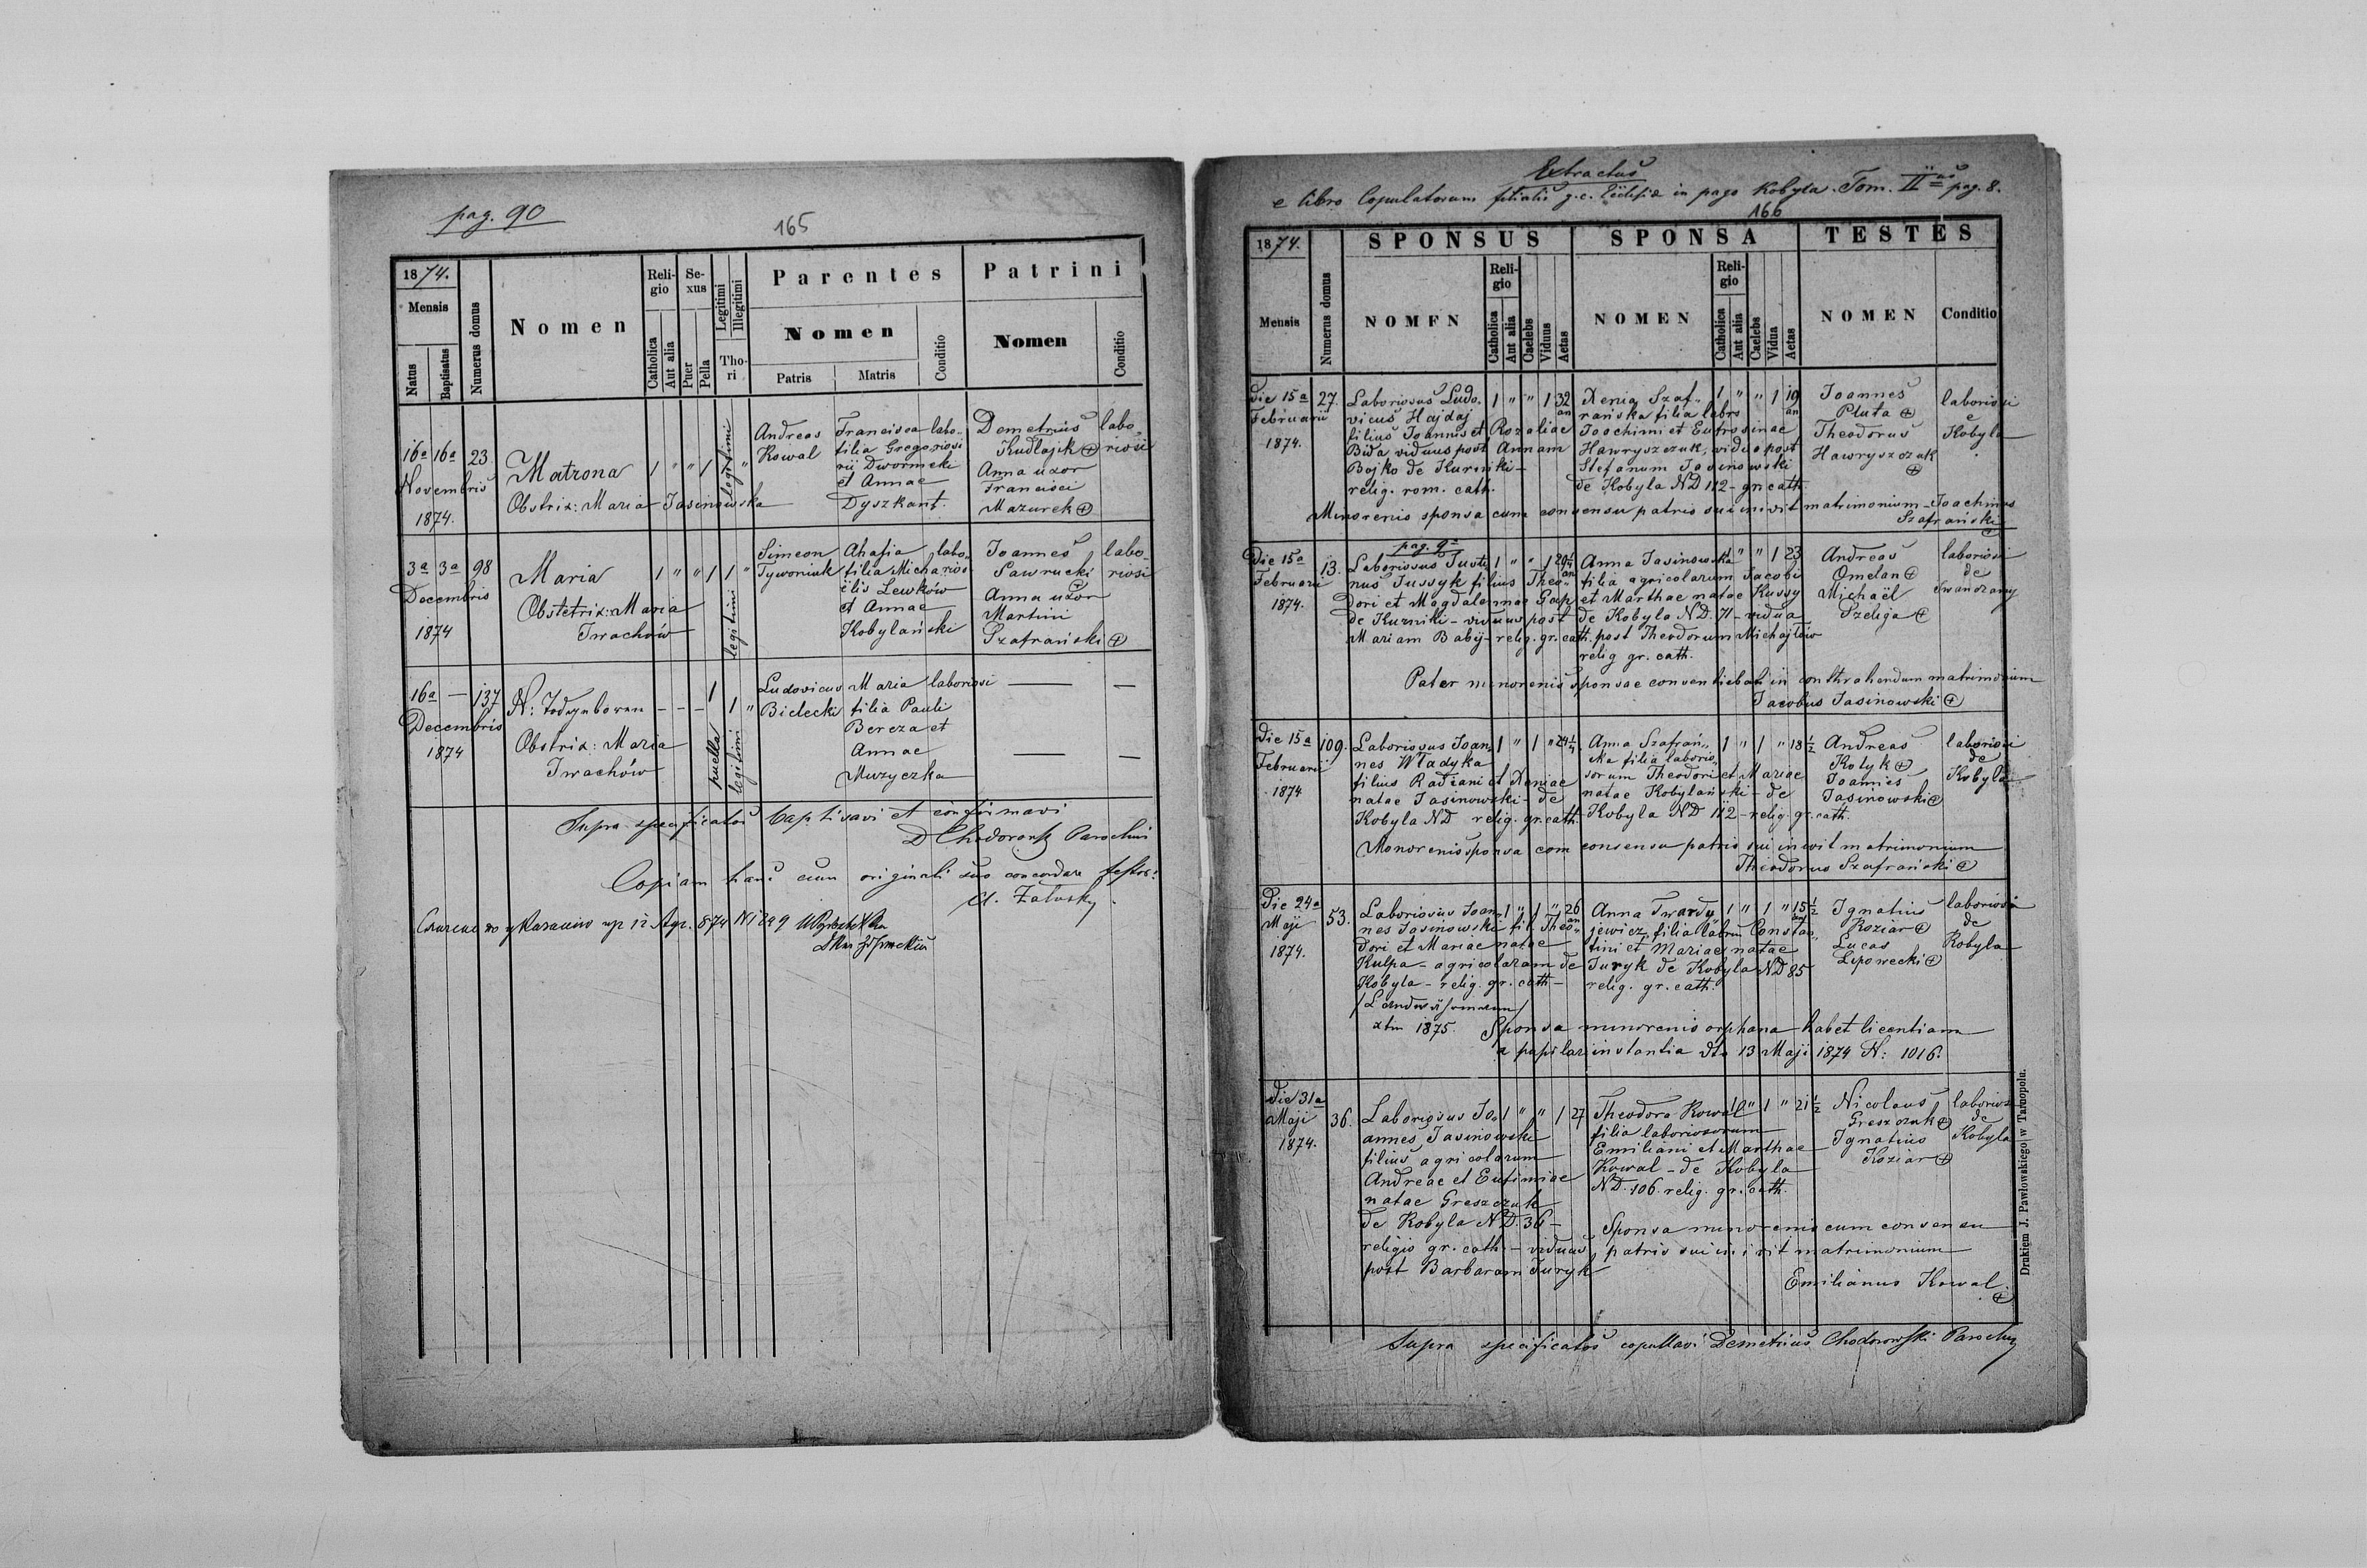 pag. 90
165
1874.
Mensis
Natus
Baptisatus
Numerus domus
Nomen
Religio
Catholica
Aut alia
Sexus
Puer
Pella
Legitimi
Illegitimi
Thori
Parentes
Nomen
Patris
Matris
Conditio
Patrini
Nomen
Conditio
16a 16a 23
Novembris
1874.
Matrona
Obstrix: Maria Jasinowska
1 " " 1 legitimi "
Andreas
Kowal
Francisca labo-
filia Gregoriosi
rii Dwornicki
et Annae
Dyszkant.
Demetrius labo-
Kudlajik riosi
Anna uxor
Francisci
Mazurek
3a 3a 98
Decembris
1874
Maria
Obstetrix: Maria
Iwachów
1 " " 1 1 "
legitimi
Simeon
Tywoniuk
Ahafia labo-
filia Micha riosi
ëlis Lewków
et Annae
Kobylański
Joannes labo-
Sawrucki riosi
Anna uxor
Martini
Szafrański
16a — 137
Decembris
1874
Obstrix: Maria
Iwachów
- - - 1 1 "
puella
legitimi
Ludovicus
Bielecki
Maria laboriosi
filia Pauli
Bereza et
Annae
Muzyczka
Supra specificatos baptisavi et confirmavi
D Chodorowski Parochus
Copiam hanc cum originali suo concordare testor:
Załusky
pag. 8.
Extractus
e libro Copulatorum filialis g.c. Ecclesiæ in pago Kobyla. Tom. II us pag. 8.
166
1874.
Mensis
Numerus domus
SPONSUS
NOMEN
Religio
Catholica
Aut alia
Caelebs
Viduus
Aetas
SPONSA
NOMEN
Religio
Catholica
Aut alia
Caelebs
Vidua
Aetas
TESTES
NOMEN
Conditio
Die 15a
Februarii
1874.
27.
Laboriosus Ludo-
vicus Hajdaj
filius Joannis et Rozaliae
Bida viduus post Annam
Bojko de Kurniki -
relig. rom. cath.
1 " " 1 32 an
Xenia Szaf-
rańska filia labrs
Joachimi et Eufrosinae
Hawryszczuk, vidua post
Stefanum Jasinowski
de Kobyla ND 112 - gr. cath.
1 " " 1 19 an
Joannes
Pluta
Theodorus
Hawryszczuk
laboriosi
e
Kobyla
Minorenis sponsa cum consensu patris sui inivit matrimonium - Joachimus
Szafrański
pag. 9
Die 15a
Februarii
1874.
13.
Laboriosus Justi-
nus Jussyk filius Theo-
dori et Magdalennae Gap
de Kurniki - viduus post
Mariam Babij - relig. gr. cath.
1 " " 1
Anna Jasinowska
filia agricolarum Jacobi
et Marthae natae Kussy
de Kobyla ND. 71 - vidua
post Theodorum Michajłów
relig gr. cath.
1 " " 1 23
Andreas
Omelan
Michaël
Szeliga
laboriosi
de
Iwanczany
Pater minorenis sponsae consentiebat in conthrahendum matrimonium
Jacobus Jasinowski
Die 15a
Februarii
1874
109.
Laboriosus Joan-
nes Władyka
filius Radiani et Xeniae
natae Jasinowski - de
Kobyla ND relig. gr. cath.
1 " 1 " 24 1/4
Anna Szafrań-
ska filia laborio-
sorum Theodori et Mariae
natae Kobylański - de
Kobyla ND 112 - relig. gr. cath.
1 " 1 " 18 1/2
Andreas
Kotyk
Joannes
Jasinowski
laboriosi
de
Kobyla
Monorenis sponsa com consensu patris sui inivit matrimonium
Theodorus Szafrański
Die 24a
Maji
1874.
53.
Laboriosus Joan-
nes Jasinowski fil. Theo-
dori et Mariae natae
Kulpa - agricolaram de
Kobyla - relig. gr. cath -
1 " 1 " 26 an
xtin 1875.
Anna Twardy-
jewicz, filia labrm Constan-
tini et Mariae, natae
Juryk de Kobyla ND 85
relig. gr. cath.
1 " 1 " 15 1/2
Ignatius
Koziar
Lucas
Lipowecki
laboriosi
de
Kobyla
Sponsa minorenis orphana habet licentiam
a pupilar instantia dto 13 Maji 1874 N: 1016.
Die 31a
Maji
1874.
36.
Laboriosus Jo-
annes Jasinowski
filius agricolarum
Andreae et Eufimiae
natae Greszczuk
de Kobyla ND. 36 -
religio gr. cath. - viduus
post Barbaram Juryk
1 " " 1 27
Theodora Kowal
filia laboriosorum
Emiliani et Marthae
Kowal - de Kobyla
ND. 106. relig. gr. cath.
1 " 1 " 21 1/2
Nicolaus
Greszczuk
Ignatius
Koziar
laboriosi
de
Kobyla
Sponsa minorenis cum consensu
patris sui inivit matrimonium
Emilianus Kowal.
Supra specificatos copullavi Demetrius Chodorowski Parochus
Drukiem J. Pawłowskiego w Tarnopolu.